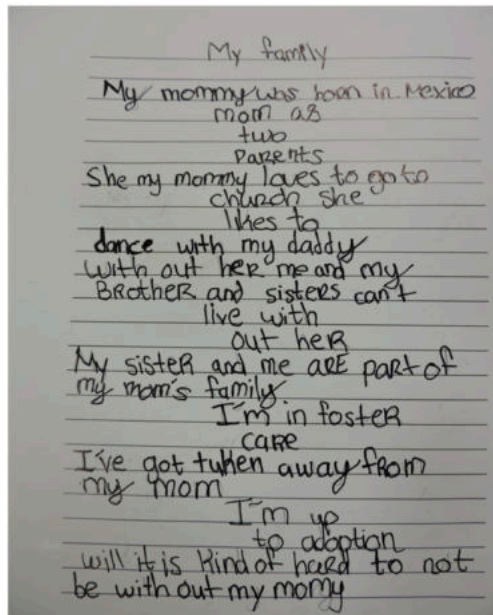 My family
My mommy was born in Mexico
mom as
two
PaRents
She my mommy loves to go to
church she
likes to
dance with my daddy
with out heR me and my
BRotheR and sisteRs can't
live with
out heR
My sisteR and me aRE paRt of
my mom's family
I'm in fosteR
caRe
I've got tuken away fRom
my mom
I'm up
to adoption
will it is kind of haRd to not
be with out my momy